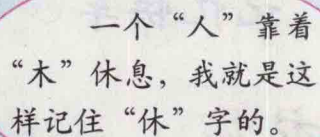 一个“人”靠着
“木”休息，我就是这
样记住“休”字的。